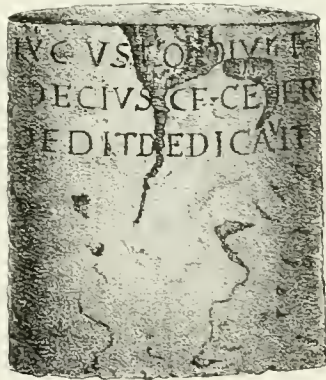 AVGVSTO DIVI F
DECIVS C·F·CELER
DEDIT DEDICAVIT